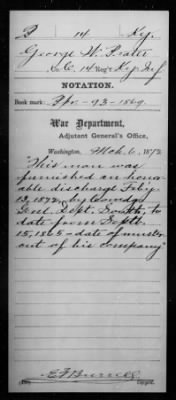 P 14 Ky.
George W. Prater
Co. C, 14 Reg't Ky. Inf.
NOTATION.
Book mark:
War Department,
Adjutant General's Office,
Washington, Mch. 6, 1872
"This man was
furnished an honor-
able discharge Feb'y
13, 1872, by Comd'g
Genl. Dept. South, to
date from Septr.
15, 1865 - date of muster
out of his company"
Copyist.